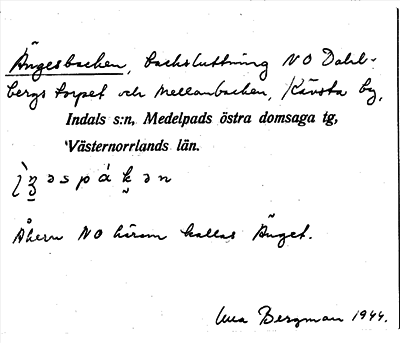 Ängesbacken, backsluttning NO Dahl-
bergs torpet och Mellanbacken, Kävsta by,
Indals s:n, Medelpads östra domsaga tg,
Västernorrlands län.
Åkern NO härom kallas Änget.
Bergman 1944.